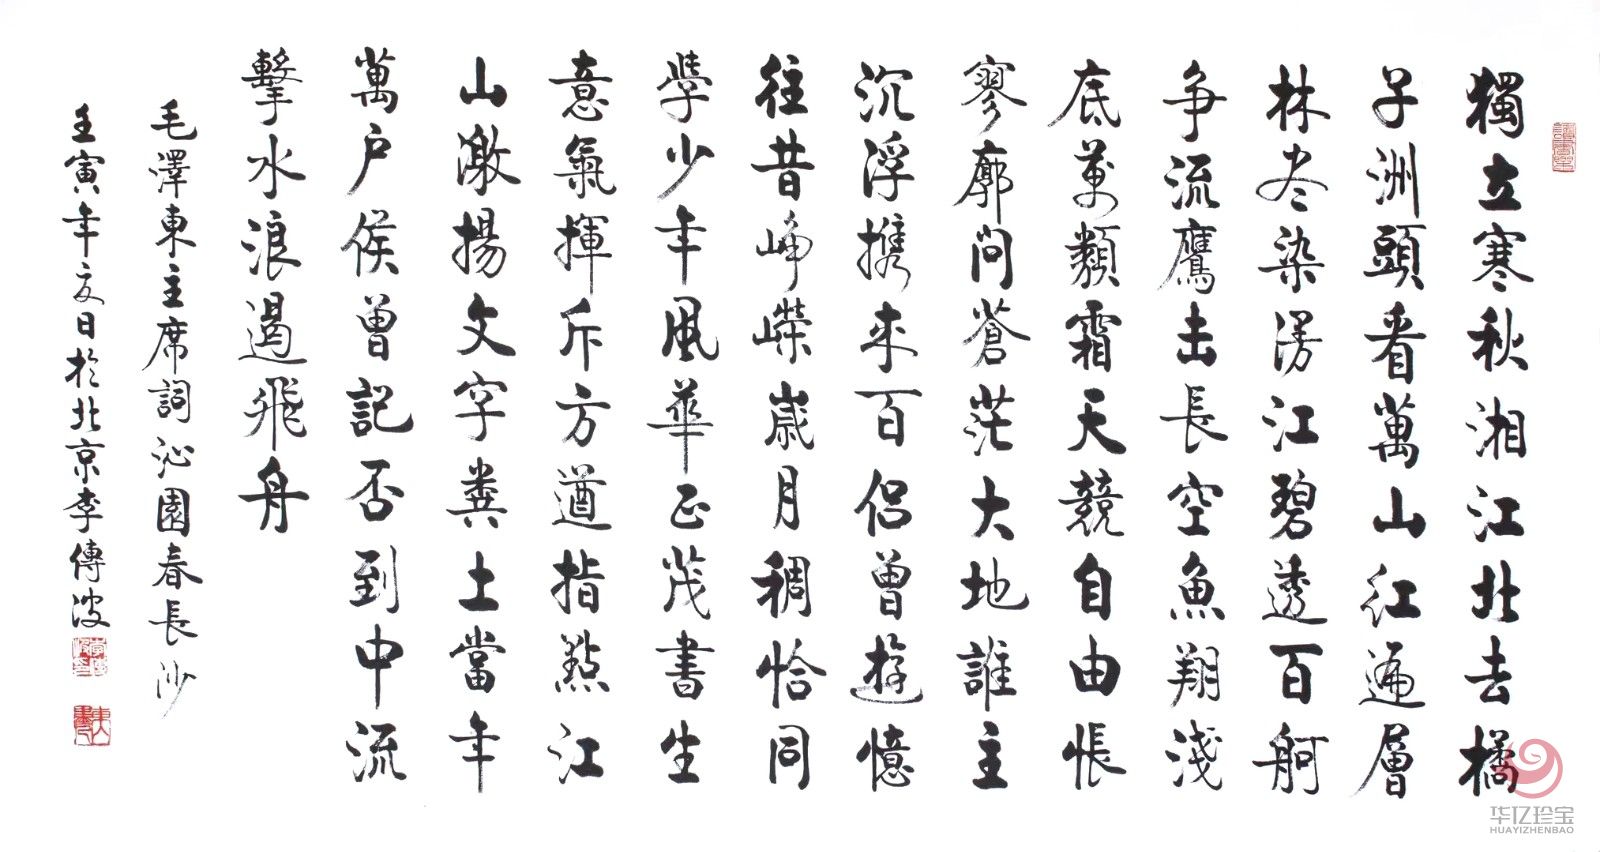 獨立寒秋湘江北去橘
子洲頭看萬山红遍層
林尽染漫江碧透百舸
争流鷹击長空魚翔淺
底萬類霜天競自由悵
寥廓問蒼茫大地誰主
沉浮携來百侣曾遊憶
往昔峥嶸歲月稠恰同
學少年風華正茂書生
意氣揮斥方遒指點江
山激揚文字糞土當年
萬户侯曾記否到中流
擊水浪遏飛舟
毛澤東主席詞沁園春長沙
壬寅年夏日於北京李傳波
华亿珍宝
HUAYIZHENBAO